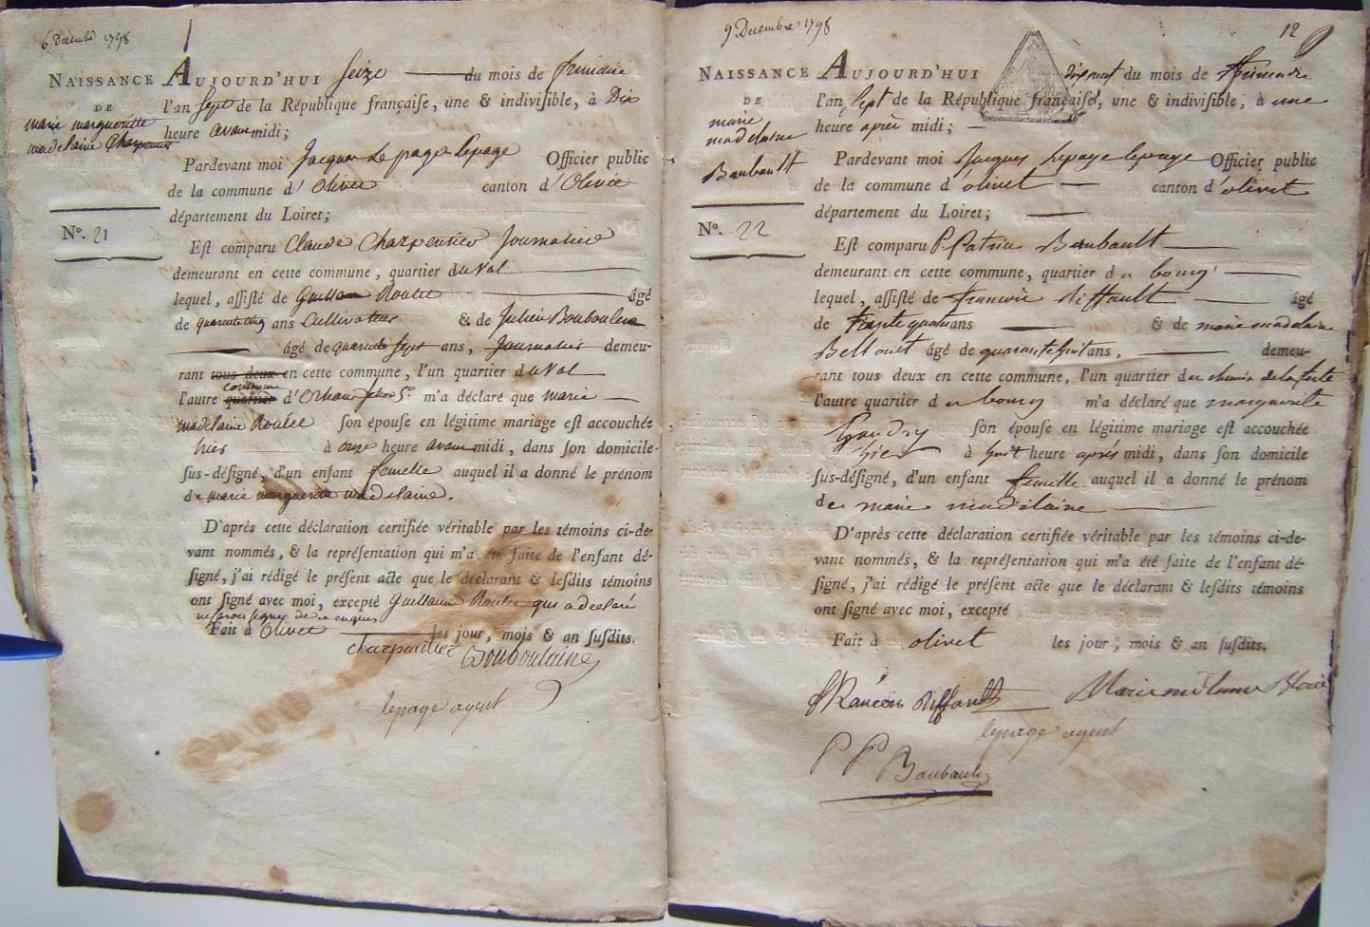 6 Décembre 1798
NAISSANCE
DE
marie margueritte
madelaine Charpentier
N°. 21
AUJOURD'HUI Seize du mois de frimaire
l'an Sept de la République françaiſe, une & indiviſible, à Dix
heure avant midi;
Pardevant moi Jacques Le page lepage Officier public
de la commune d'Olivet canton d'Olivet
département du Loiret;
Eſt comparu Claude Charpentier Journalier
demeurant en cette commune, quartier du Val
lequel, aſſiſté de Guillaume Roulet âgé
de quarente cinq ans Cultivateur & de Julien Bouboulene
âgé de quarente Sept ans, Journalier demeu-
rant tous deux en cette commune, l'un quartier du Val
commune
l'autre quartier d'Orleans m'a déclaré que marie
madelaine Roulet ſon épouſe en légitime mariage eſt accouchée
hier à onze heure avant midi, dans ſon domicile
ſus-déſigné, d'un enfant femelle auquel il a donné le prénom
de marie margueritte madelaine.
D'après cette déclaration certifiée véritable par les témoins ci-de-
vant nommés, & la repréſentation qui m'a été faite de l'enfant dé-
ſigné, j'ai rédigé le préſent acte que le déclarant & leſdits témoins
ont ſigné avec moi, excepté Guillaume Roulet qui a déclaré
ne ſavoir signer de ce enquis
Fait à Olivet les jour, mois & an ſuſdits.
charpentier Bouboulaine
lepage agent
9 Decembre 1798
12
NAISSANCE
DE
marie
madelaine
Baubault
N°. 22
AUJOURD'HUI dixneuf du mois de frimaire
l'an Sept de la République françaiſe, une & indiviſible, à une
heure après midi;
Pardevant moi Jacques Lepage lepage Officier public
de la commune d'olivet canton d'olivet
département du Loiret;
Eſt comparu P. Patrice Baubault
demeurant en cette commune, quartier du bourg
lequel, aſſiſté de francois Riffault âgé
de trente quatre ans & de marie madelaine
âgé de quarante huit ans, demeu-
rant tous deux en cette commune, l'un quartier du chemin de la ferté
l'autre quartier du bourg m'a déclaré que marguerite
Gaudry ſon épouſe en légitime mariage eſt accouchée
hier à huit heure après midi, dans ſon domicile
ſus-déſigné, d'un enfant femelle auquel il a donné le prénom
de marie madelaine
D'après cette déclaration certifiée véritable par les témoins ci-de-
vant nommés, & la repréſentation qui m'a été faite de l'enfant dé-
ſigné, j'ai rédigé le préſent acte que le déclarant & leſdits témoins
ont ſigné avec moi, excepté
Fait à olivet les jour, mois & an ſuſdits.
fRancois Riffault
lepage agent
P P Baubault